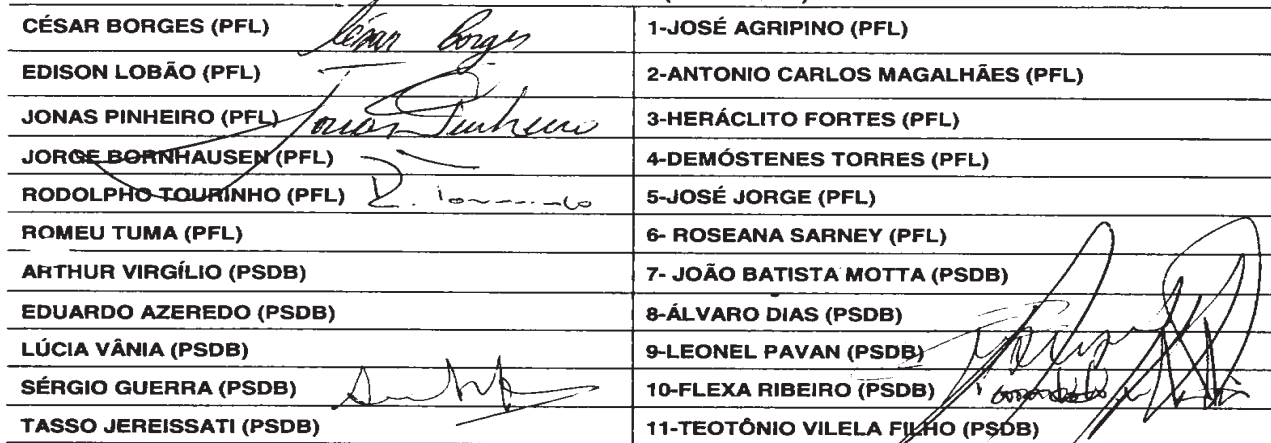 CÉSAR BORGES (PFL) César Borges 1-JOSÉ AGRIPINO (PFL)
EDISON LOBÃO (PFL) 2-ANTONIO CARLOS MAGALHÃES (PFL)
JONAS PINHEIRO (PFL) Jonas Pinheiro 3-HERÁCLITO FORTES (PFL)
JORGE BORNHAUSEN (PFL) 4-DEMÓSTENES TORRES (PFL)
RODOLPHO TOURINHO (PFL) R. Tourinho 5-JOSÉ JORGE (PFL)
ROMEU TUMA (PFL) 6- ROSEANA SARNEY (PFL)
ARTHUR VIRGÍLIO (PSDB) 7- JOÃO BATISTA MOTTA (PSDB)
EDUARDO AZEREDO (PSDB) 8-ÁLVARO DIAS (PSDB)
LÚCIA VÂNIA (PSDB) 9-LEONEL PAVAN (PSDB)
SÉRGIO GUERRA (PSDB) 10-FLEXA RIBEIRO (PSDB)
TASSO JEREISSATI (PSDB) 11-TEOTÔNIO VILELA FILHO (PSDB)